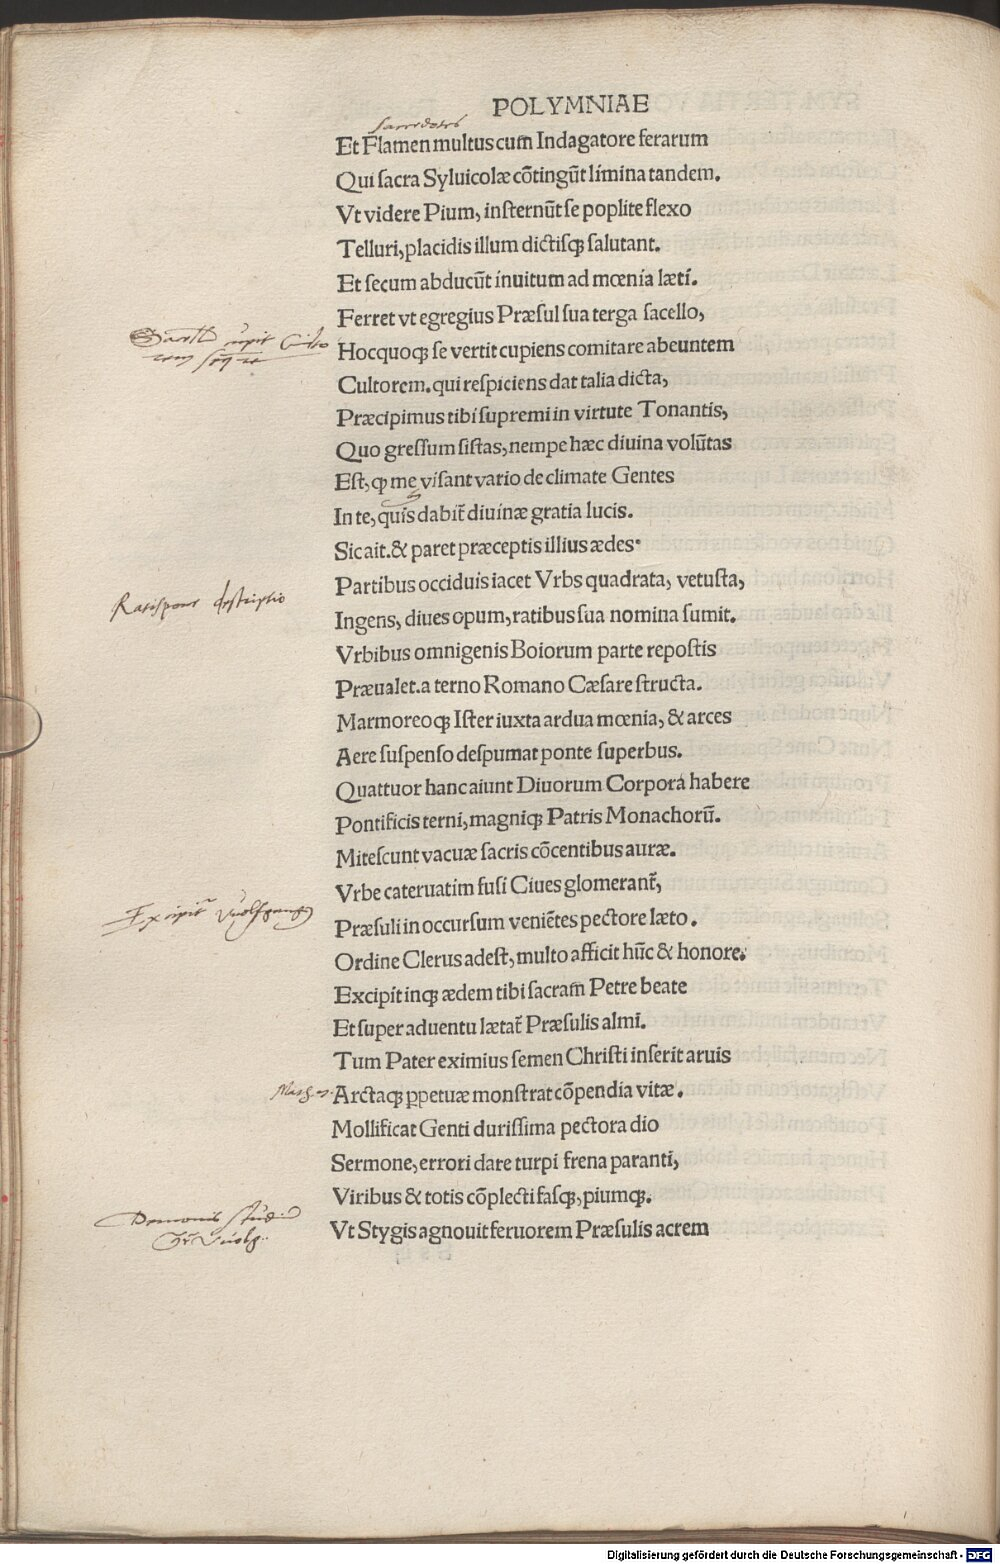 POLYMNIAE
sacerdotes
Et Flamen multus cum Indagatore ferarum
Qui sacra Syluicolæ cōtingūt limina tandem.
Vt videre Pium, insternūt se poplite flexo
Telluri, placidis illum dictisqꝫ salutant.
Et secum abducūt inuitum ad mœnia læti.
Ferret vt egregius Præsul sua terga sacello,
Hocquoqꝫ se vertit cupiens comitare abeuntem
Cultorem. qui respiciens dat talia dicta,
Præcipimus tibi supremi in virtute Tonantis,
Quo gressum sistas, nempe hæc diuina volūtas
Est, ꝙ me visant vario de climate Gentes
In te, quis dabit̄ diuinæ gratia lucis.
Sic ait. & paret præceptis illius ædes.
Ratispone descriptio
Partibus occiduis iacet Vrbs quadrata, vetusta,
Ingens, diues opum, ratibus sua nomina sumit.
Vrbibus omnigenis Boiorum parte repostis
Præualet. a terno Romano Cæsare structa.
Marmoreoqꝫ Ister iuxta ardua mœnia, & arces
Aere suspenso despumat ponte superbus.
Quattuor hanc aiunt Diuorum Corpora habere
Pontificis terni, magniqꝫ Patris Monachorū.
Mitescunt vacuæ sacris cōcentibus auræ.
Vrbe cateruatim fusi Ciues glomerant̄,
Excipit̄ Vuolfgang
Præsuli in occursum veniētes pectore læto.
Ordine Clerus adest, multo afficit hūc & honore.
Excipit inqꝫ ædem tibi sacram Petre beate
Et super aduentu lætat̄ Præsulis almi.
Tum Pater eximius semen Christi inserit aruis
Arctaqꝫ ꝑpetuæ monstrat cōpendia vitæ.
Mollificat Genti durissima pectora dio
Sermone, errori dare turpi frena paranti,
Viribus & totis cōplecti fasqꝫ, piumqꝫ.
Demonis
Vt Stygis agnouit feruorem Præsulis acrem
Digitalisierung gefördert durch die Deutsche Forschungsgemeinschaft - DFG